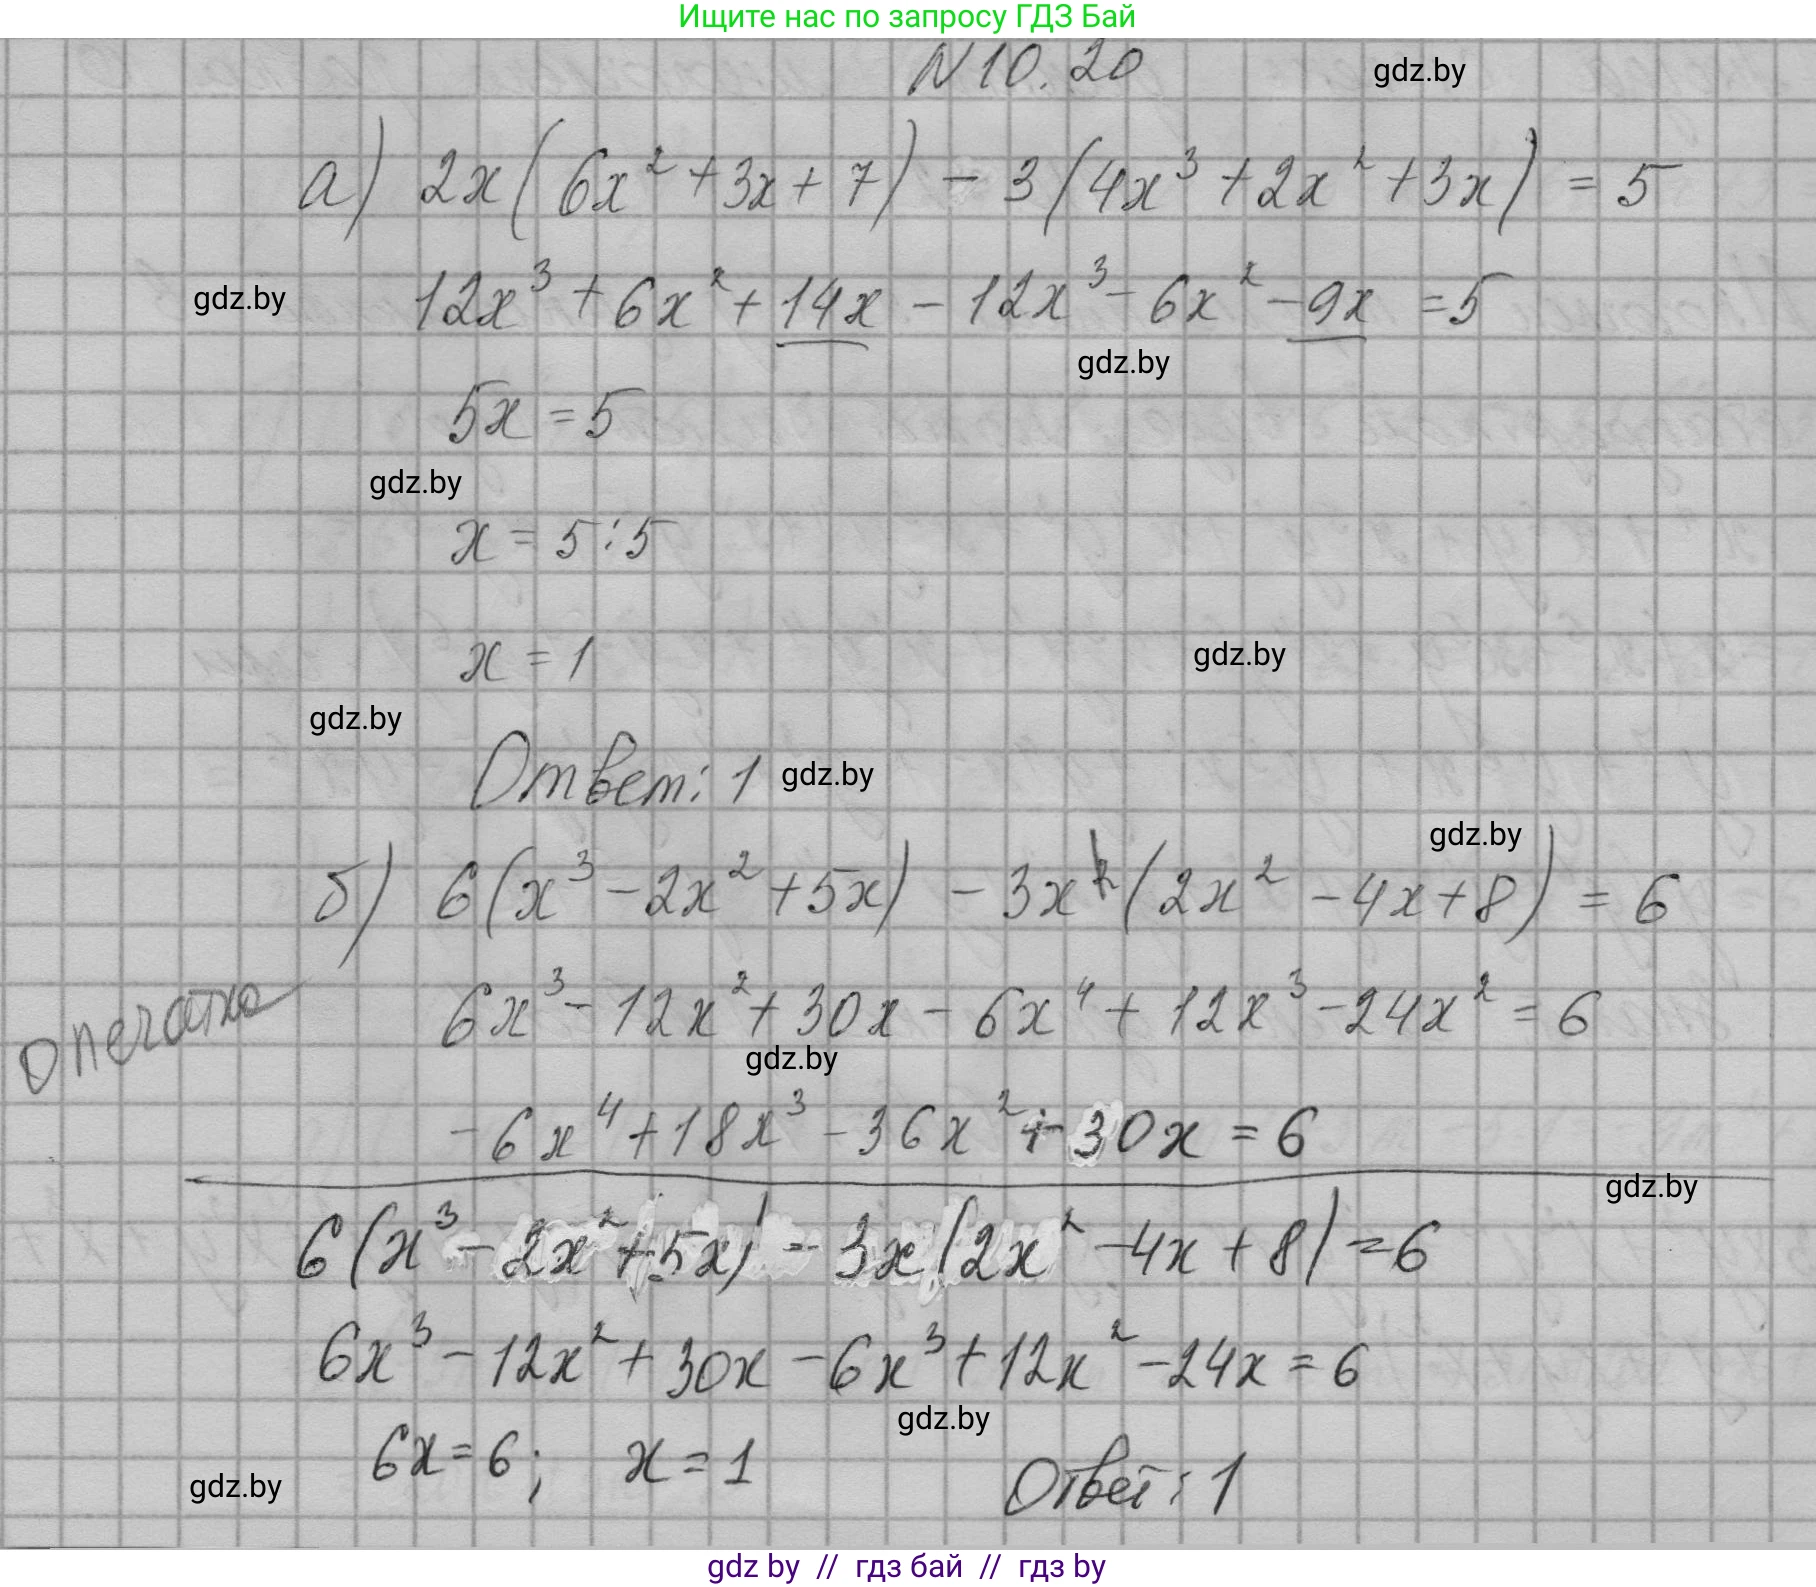 Ищите нас по запросу ГДЗ Бай
N 10.20
gdz.by
а) 2x(6x² + 3x + 7) - 3(4x³ + 2x² + 3x) = 5
gdz.by
12x³ + 6x² + 14x - 12x³ - 6x² - 9x = 5
gdz.by
5x = 5
gdz.by
x = 5 : 5
x = 1
gdz.by
gdz.by
Ответ: 1
gdz.by
gdz.by
б) 6(x³ - 2x² + 5x) - 3x²(2x² - 4x + 8) = 6
опечатка
6x³ - 12x² + 30x - 6x⁴ + 12x³ - 24x² = 6
gdz.by
-6x⁴ + 18x³ - 36x² + 30x = 6
gdz.by
6(x³ - 2x² + 5x) - 3x(2x² - 4x + 8) = 6
6x³ - 12x² + 30x - 6x³ + 12x² - 24x = 6
gdz.by
6x = 6; x = 1
Ответ: 1
gdz.by
gdz by // гдз бай // гдз by